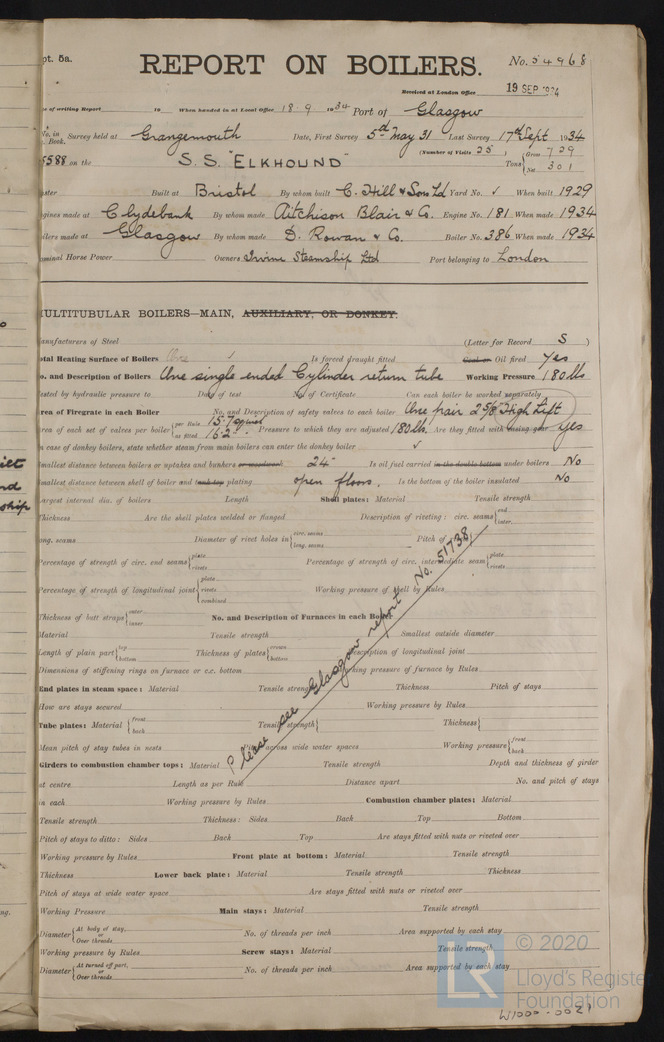 pt. 5a.
REPORT ON BOILERS.
No. 54968
Received at London Office 19 SEP 1934
of writing Report 19 When handed in at Local Office 18.9.1934 Port of Glasgow
No. in Book. Survey held at Grangemouth Date, First Survey 5th May 31 Last Survey 17th Sept 1934
(Number of Visits 25)
5588 on the S.S. "ELKHOUND" Tons { Gross 729 Net 301
Built at Bristol By whom built C. Hill & Sons Ld Yard No. ✓ When built 1929
gines made at Clydebank By whom made Aitchison Blair & Co. Engine No. 181 When made 1934
ilers made at Glasgow By whom made D. Rowan & Co. Boiler No. 386 When made 1934
ominal Horse Power Owners Irvine Steamship Ltd Port belonging to London
MULTITUBULAR BOILERS—MAIN, AUXILIARY, OR DONKEY.
anufacturers of Steel (Letter for Record S)
otal Heating Surface of Boilers ✓ Is forced draught fitted Coal or Oil fired Yes
o. and Description of Boilers One single ended Cylinder return tube Working Pressure 180 lbs
ested by hydraulic pressure to Date of test No. of Certificate Can each boiler be worked separately
rea of Firegrate in each Boiler No. and Description of safety valves to each boiler One pair 2 5/8" High Lift
rea of each set of valves per boiler { per Rule 15.7 as fitted 16.2 Pressure to which they are adjusted 180 lbs. Are they fitted with easing gear Yes
n case of donkey boilers, state whether steam from main boilers can enter the donkey boiler ✓
mallest distance between boilers or uptakes and bunkers or woodwork 24" Is oil fuel carried in the double bottom under boilers No
mallest distance between shell of boiler and tank top plating open floors. Is the bottom of the boiler insulated No
argest internal dia. of boilers Length Shell plates: Material Tensile strength
Thickness Are the shell plates welded or flanged Description of riveting: circ. seams { end inter.
ong. seams Diameter of rivet holes in { circ. seams long. seams Pitch of
Percentage of strength of circ. end seams { plate rivets Percentage of strength of circ. intermediate seam { plate rivets
Percentage of strength of longitudinal joint { plate rivets combined Working pressure of shell by Rules
Thickness of butt straps { outer inner No. and Description of Furnaces in each Boiler
Material Tensile strength Smallest outside diameter
Length of plain part { top bottom Thickness of plates { crown bottom Description of longitudinal joint
Dimensions of stiffening rings on furnace or c.c. bottom Working pressure of furnace by Rules
End plates in steam space: Material Tensile strength Thickness Pitch of stays
How are stays secured Working pressure by Rules
Tube plates: Material { front back Tensile strength { Thickness {
Mean pitch of stay tubes in nests Pitch across wide water spaces Working pressure { front back
Girders to combustion chamber tops: Material Tensile strength Depth and thickness of girder
at centre Length as per Rule Distance apart No. and pitch of stays
in each Working pressure by Rules Combustion chamber plates: Material
Tensile strength Thickness: Sides Back Top Bottom
Pitch of stays to ditto: Sides Back Top Are stays fitted with nuts or riveted over
Working pressure by Rules Front plate at bottom: Material Tensile strength
Thickness Lower back plate: Material Tensile strength Thickness
Pitch of stays at wide water space Are stays fitted with nuts or riveted over
Working Pressure Main stays: Material Tensile strength
Diameter { At body of stay, or Over threads No. of threads per inch Area supported by each stay
Working pressure by Rules Screw stays: Material Tensile strength
Diameter { At turned off part, or Over threads No. of threads per inch Area supported by each stay
Please see Glasgow report No. 51738
© 2020
Lloyd's Register
Foundation
W1000-0021